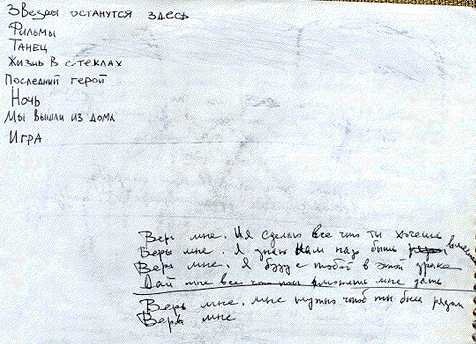 Звезды останутся здесь
Фильмы
Танец
Жизнь в стеклах
Последний герой
Ночь
Мы вышли из дома
Игра
Верь мне. И я сделаю все что ты хочешь
Верь мне. Я знаю нам надо быть вместе
Верь мне. Я буду с тобой в этой драке
Дай мне все мне дать
Верь мне. мне нужно чтоб ты был рядом
Верь мне